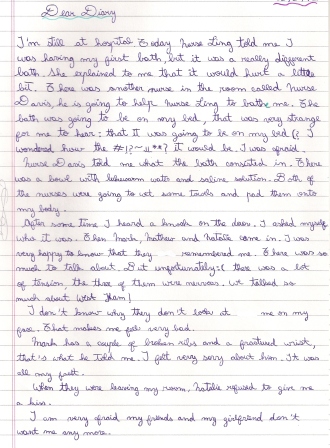 Dear Diary
I'm still at hospital. Today Nurse Ling told me I
was having my first bath, but it was a really different
bath. She explained to me that it would hurt a little
bit. There was another nurse in the room called Nurse
Davis, he is going to help Nurse Ling to bathe me. The
bath was going to be on my bed, that was very strange
for me to hear: that IT was going to be on my bed(?) I
wondered hour the #!?~ll**? it would be. I was afraid.
Nurse Davis told me what the bath consisted in. There
was a bowl with lukewarm water and saline solution. Both of
the nurses were going to wet some towels and pad them onto
my body.
After some time I heard a knock on the door. I asked myself
who it was. Then Mark, Mathew and Natalie came in. I was
very happy to know that they remembered me. There was so
much to talk about. But unfortunately: there was a lot
of tension, the three of them were nervous. We talked so
much about West Ham!
I don't know why they don't look at me on my
face. That makes me feel very bad.
Mark has a couple of broken ribs and a fractured wrist,
that's what he told me. I felt very sorry about him. It was
all my fault.
When they were leaving my room. Natalie refused to give me
a kiss.
I am very afraid my friends and my girlfriend don't
want me any more.